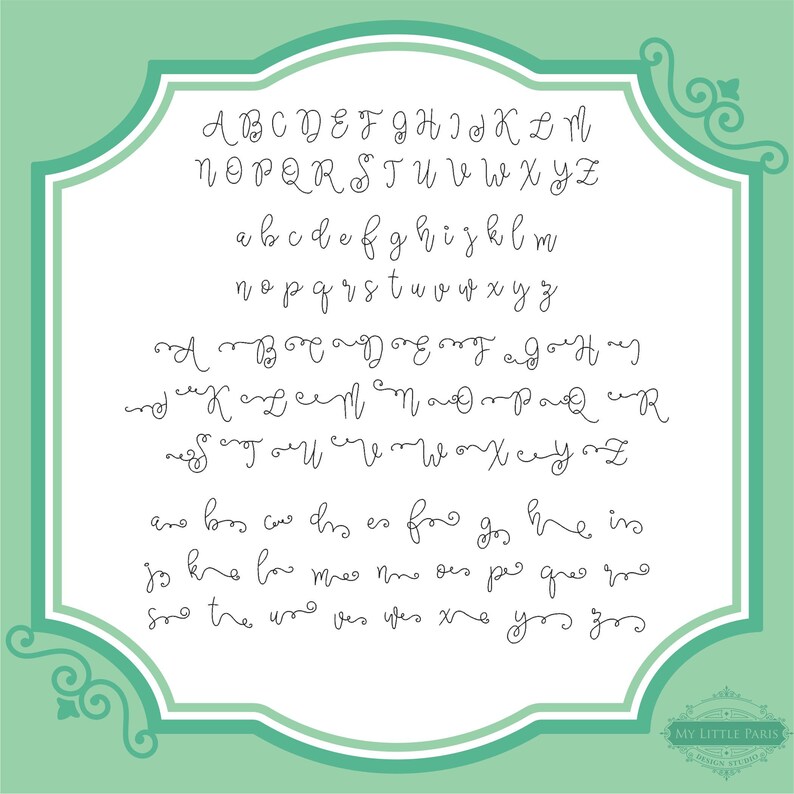 A B C D E F G H I J K L M
N O P Q R S T U V W X Y Z
a b c d e f g h i j k l m
n o p q r s t u v w x y z
A B C D E F G H I
J K L M N O P Q R
S T U V W X Y Z
a b c d e f g h i
j k l m n o p q r
s t u v w x y z
MY LITTLE PARIS
DESIGN STUDIO